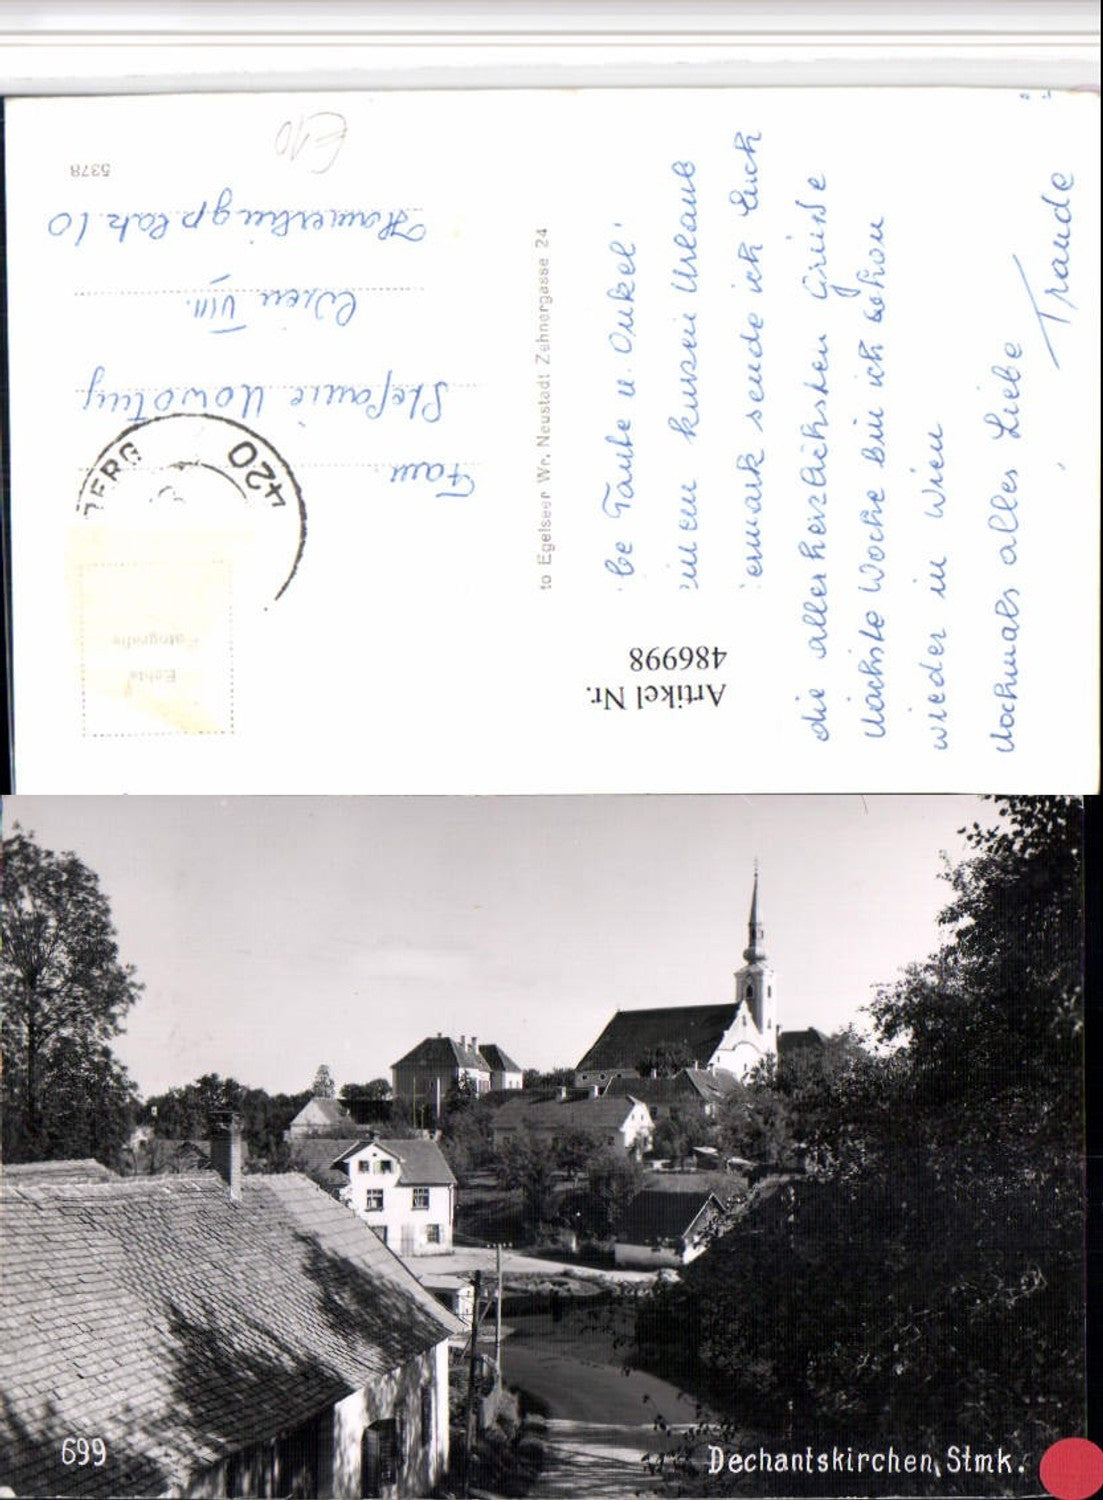 be Tante u. Onkel!
inem kurzen Urlaub
ermark sende ich Euch
die allerherzlichsten Grüße
Nächste Woche bin ich schon
wieder in Wien
Nochmals alles Liebe
Traude
to Egelseer Wr. Neustadt Zehnergasse 24
ZERG
420
Echte
Fotografie
Fam.
Stefanie Nowotny
Wien VIII.
Hamerlingplatz 10
5378
£10
Artikel Nr.
486998
699
Dechantskirchen, Stmk.